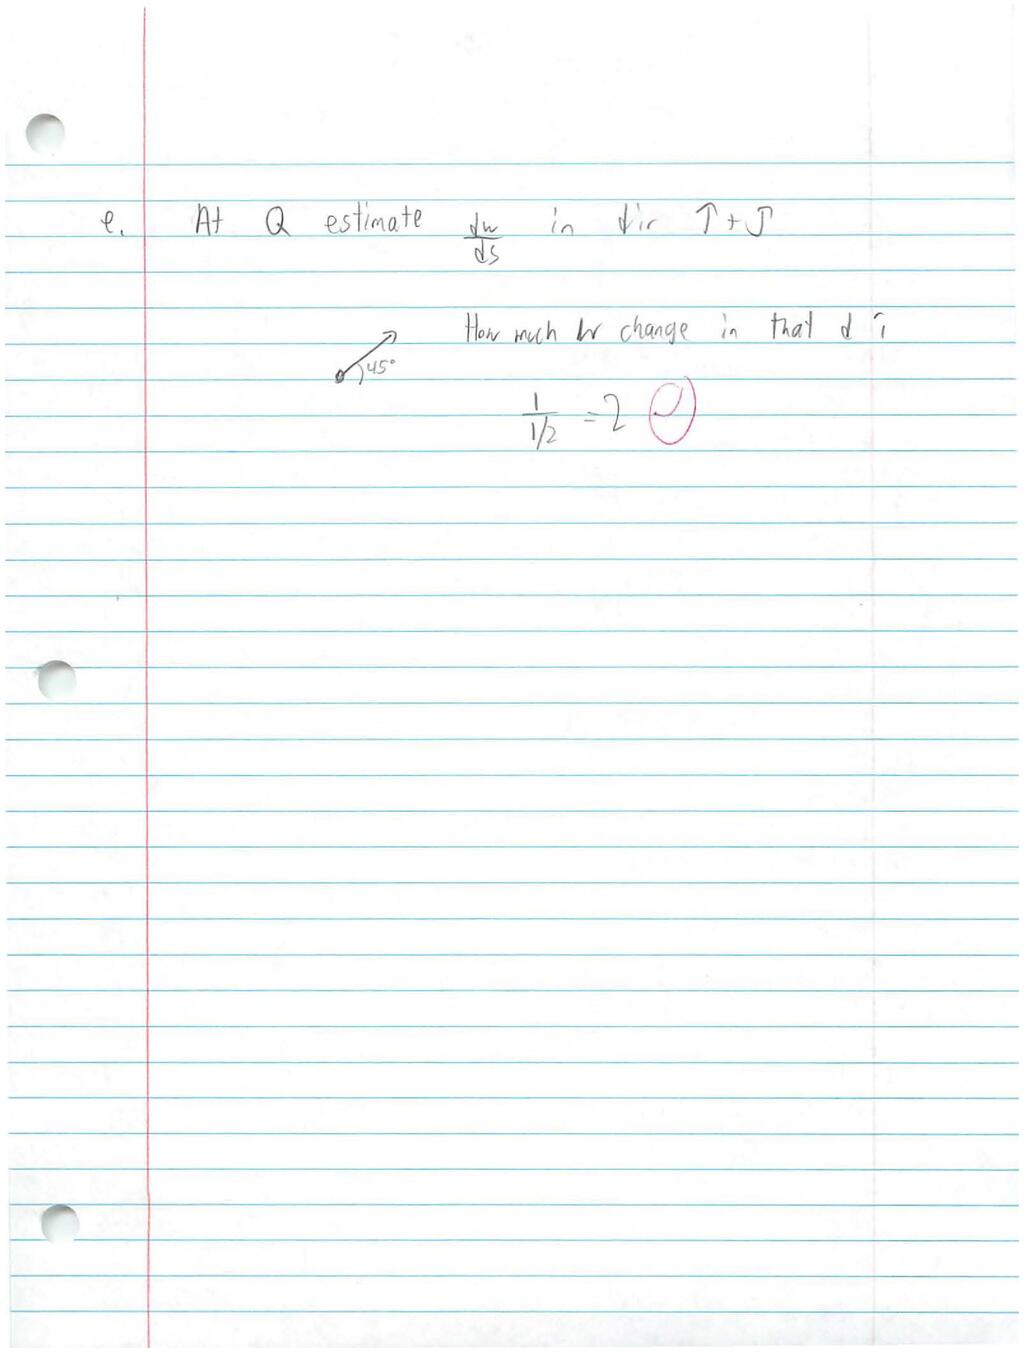 e. At Q estimate dw/ds in dir î + ĵ
How much w change in that d
45°
1/1/2 = 2